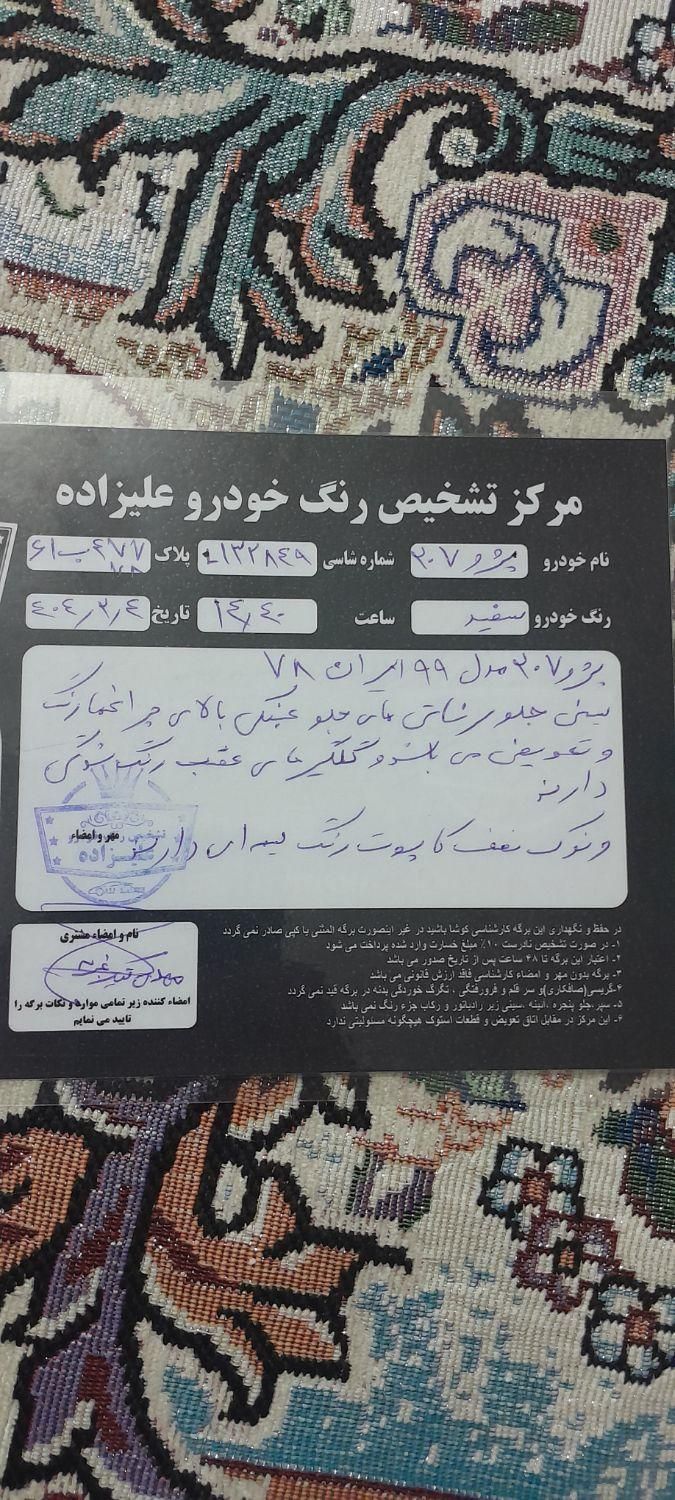 مرکز تشخیص رنگ خودرو علیزاده
نام خودرو پژو ۲۰۷ شماره شاسی ۱۳۲۸۴۹ پلاک ۴۷۷ب۶۱
۷۸
رنگ خودرو سفید ساعت ۱۴٫۴۰ تاریخ ۴۰۴٫۳٫۴
پژو ۲۰۷ مدل ۹۹ ایران ۷۸
سینی جلو سرشاسی های جلو عینکی بالای چراغها رنگ
و تعویض می باشد و گلگیر های عقب رنگ شدگی
دارند
و نوک سقف کاپوت رنگ لیسه ای دارند
مهر و امضاء
تشخیص رنگ خودرو
علیزاده
نام و امضاء مشتری
امضاء کننده زیر تمامی موارد و نکات برگه را
تایید می نمایم
در حفظ و نگهداری این برگه کارشناسی کوشا باشید در غیر اینصورت برگه المثنی یا کپی صادر نمی گردد
۱- در صورت تشخیص نادرست ۱۰٪ مبلغ خسارت وارد شده پرداخت می شود
۲- اعتبار این برگه تا ۴۸ ساعت پس از تاریخ صدور می باشد
۳- برگه بدون مهر و امضاء کارشناسی فاقد ارزش قانونی می باشد
۴-گریسی(صافکاری)و سر قلم و فرورفتگی ، تگرگ خوردگی بدنه در برگه قید نمی گردد
۵- سپر،جلو پنجره ،آئینه ،سینی زیر رادیاتور و رکاب جزو رنگ نمی باشد
۶- این مرکز در مقابل اتاق تعویض و قطعات استوک هیچگونه مسئولیتی ندارد